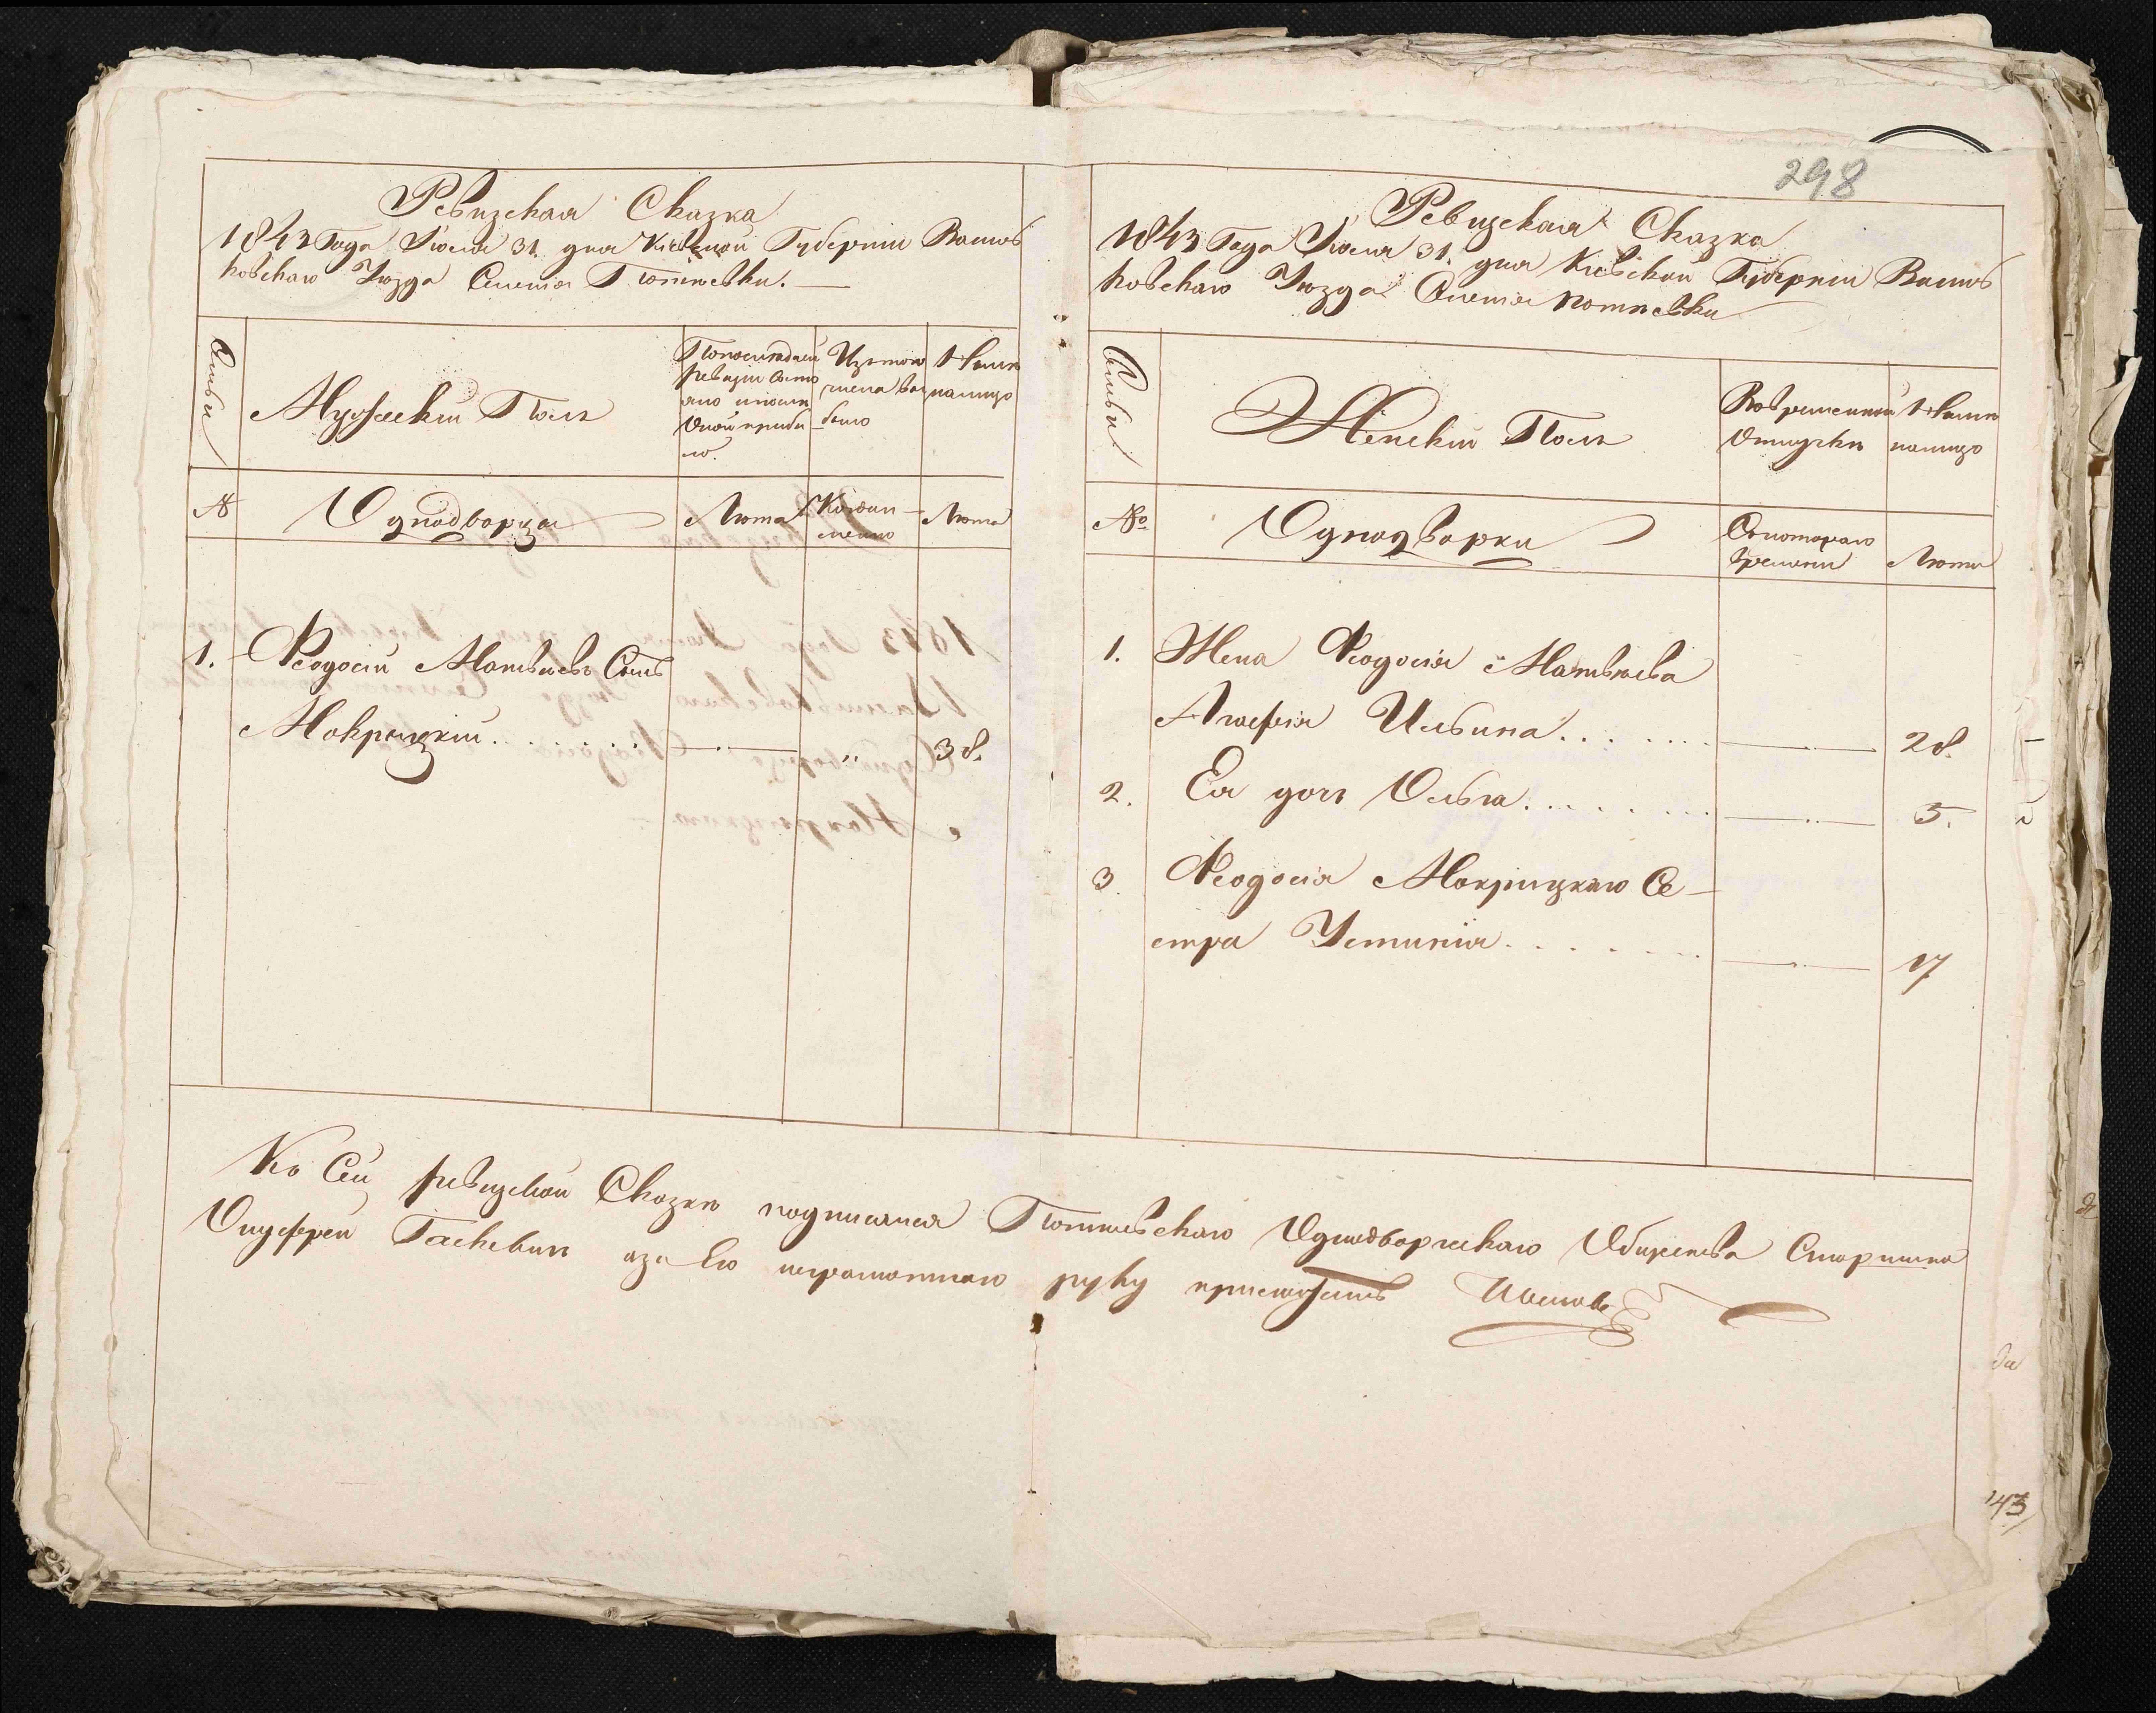 Ревизская Сказка
1843 Года Июля 31. дня Кіевской Губерніи Василь
ковскаго Уѣзда Селенія Потіевки.
Семьи
Мужескій Полъ
По последней
ревизіи состо
яло и после
Оной прибы
ло.
Изъ того
числа вы
было
Ныне
налицо
№
Однодворцы
Лѣта
Когда и
менно
Лѣта
1. Феодосій Матвѣевъ Сынъ
Мокрицкій
38.
298
Ревизская Сказка
1843 Года Июля 31. дня Кіевской Губерніи Василь
ковскаго Уѣзда Селенія Потіевки
Семьи
Женскій Полъ
Во временной
Отлучкѣ
Ныне
налицо
№
Однодворки
Съ котораго
времени
Лѣта
1. Жена Феодосія Матвѣева
Агафія Ильина 28.
2. Ея дочь Ольга 5.
3. Феодосія Мокрицкаго Се-
стра Устинія 17
Ко Сей ревизской Сказке подписался Потіевскаго Однодворческаго Общества Старшина
Онуфрей Гаскевич а за Его неграмотнаго руку приложилъ
43